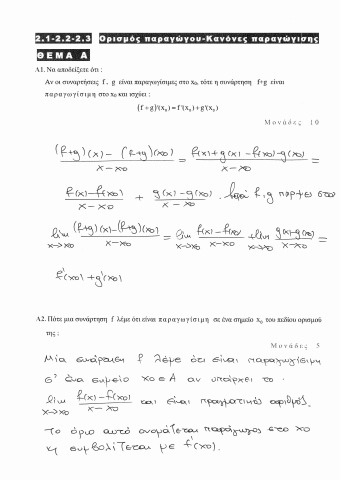 2.1-2.2-2.3 Ορισμός παραγώγου-Κανόνες παραγώγισης
ΘΕΜΑ Α
Α1. Να αποδείξετε ότι :
Αν οι συναρτήσεις f , g είναι παραγωγίσιμες στο x₀, τότε η συνάρτηση f+g είναι
παραγωγίσιμη στο x₀ και ισχύει :
(f + g)'(x₀) = f'(x₀) + g'(x₀)
Μονάδες 10
((f+g)(x) - (f+g)(x₀))/(x-x₀) = (f(x)+g(x)-f(x₀)-g(x₀))/(x-x₀) =
(f(x)-f(x₀))/(x-x₀) + (g(x)-g(x₀))/(x-x₀) . f,g παρ/μες στο
lim x→x₀ ((f+g)(x)-(f+g)(x₀))/(x-x₀) = lim x→x₀ (f(x)-f(x₀))/(x-x₀) + lim x→x₀ (g(x)-g(x₀))/(x-x₀) =
f'(x₀)+g'(x₀)
Α2. Πότε μια συνάρτηση f λέμε ότι είναι παραγωγίσιμη σε ένα σημείο x₀ του πεδίου ορισμού
της ;
Μονάδες 5
Μία συνάρτηση f λέμε ότι είναι παραγωγίσιμη
σ' ένα σημείο x₀∈A αν υπάρχει το
lim x→x₀ (f(x)-f(x₀))/(x-x₀) και είναι πραγματικός αριθμός.
Το όριο αυτό ονομάζεται παράγωγος στο x₀
κι συμβολίζεται με f'(x₀).